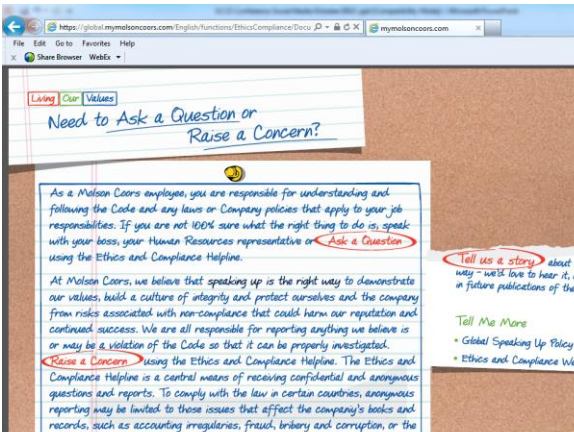 https://global.mymolsoncoors.com/English/functions/EthicsCompliance/Docu
mymolsoncoors.com
File Edit Go to Favorites Help
x Share Browser WebEx
Living Our Values
Need to Ask a Question or
Raise a Concern?
As a Molson Coors employee, you are responsible for understanding and
following the Code and any laws or Company policies that apply to your job
responsibilities. If you are not 100% sure what the right thing to do is, speak
with your boss, your Human Resources representative or Ask a Question
using the Ethics and Compliance Helpline.
At Molson Coors, we believe that speaking up is the right way to demonstrate
our values, build a culture of integrity and protect ourselves and the company
from risks associated with non-compliance that could harm our reputation and
continued success. We are all responsible for reporting anything we believe is
or may be a violation of the Code so that it can be properly investigated.
Raise a Concern using the Ethics and Compliance Helpline. The Ethics and
Compliance Helpline is a central means of receiving confidential and anonymous
questions and reports. To comply with the law in certain countries, anonymous
reporting may be limited to those issues that affect the company's books and
records, such as accounting irregularies, fraud, bribery and corruption, or the
Tell us a story about
way - we'd love to hear it,
in future publications of the
Tell Me More
• Global Speaking Up Policy
• Ethics and Compliance We